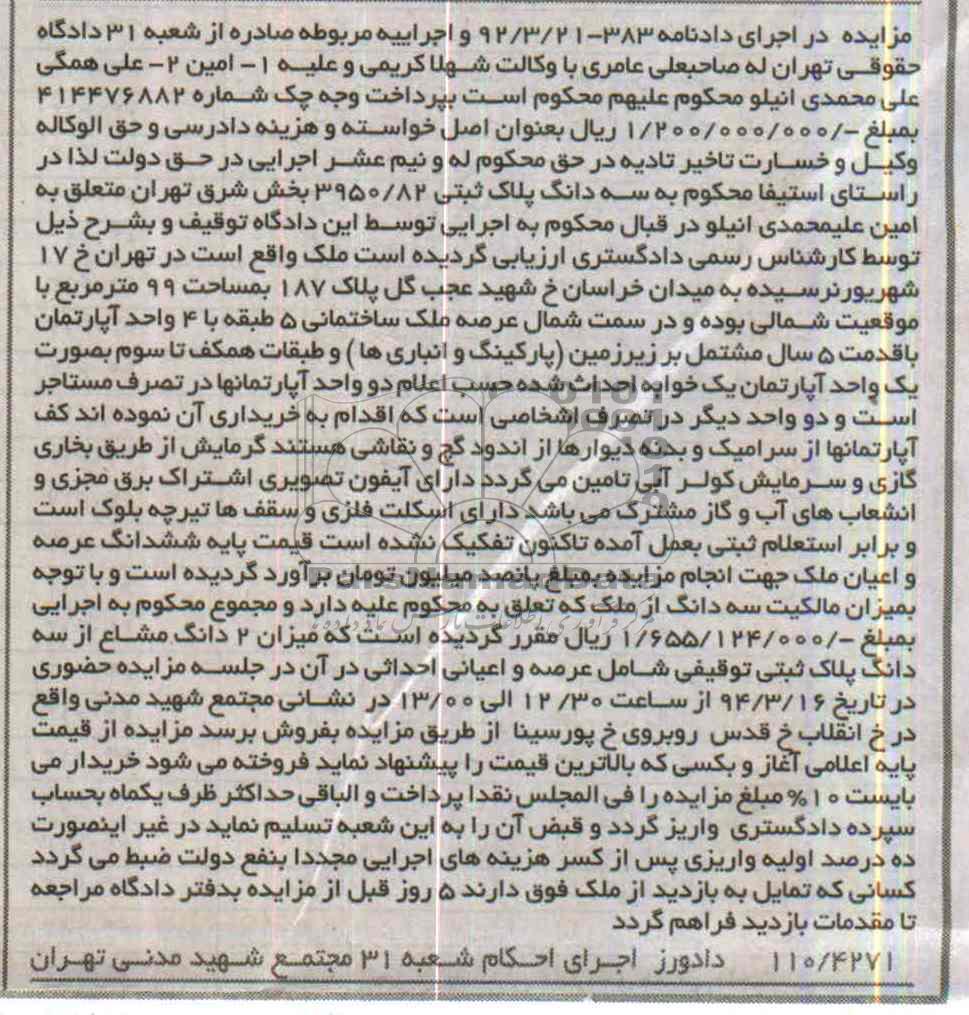 مزایده در اجرای دادنامه ۳۸۳-۹۲/۳/۲۱ و اجراییه مربوطه صادره از شعبه ۳۱ دادگاه
حقوقی تهران له صاحبعلی عامری با وکالت شهلا کریمی و علیه ۱- امین ۲- علی همگی
علی محمدی انیلو محکوم علیهم محکوم است بپرداخت وجه چک شماره ۴۱۴۴۷۶۸۸۲
بمبلغ -/۱/۲۰۰/۰۰۰/۰۰۰ ریال بعنوان اصل خواسته و هزینه دادرسی و حق الوکاله
وکیل و خسارت تاخیر تادیه در حق محکوم له و نیم عشر اجرایی در حق دولت لذا در
راستای استیفا محکوم به سه دانگ پلاک ثبتی ۳۹۵۰/۸۲ بخش شرق تهران متعلق به
امین علیمحمدی انیلو در قبال محکوم به اجرایی توسط این دادگاه توقیف و بشرح ذیل
توسط کارشناس رسمی دادگستری ارزیابی گردیده است ملک واقع است در تهران خ ۱۷
شهریور نرسیده به میدان خراسان خ شهید عجب گل پلاک ۱۸۷ بمساحت ۹۹ مترمربع با
موقعیت شمالی بوده و در سمت شمال عرصه ملک ساختمانی ۵ طبقه با ۴ واحد آپارتمان
باقدمت ۵ سال مشتمل بر زیرزمین (پارکینگ و انباری ها ) و طبقات همکف تا سوم بصورت
یک واحد آپارتمان یک خوابه احداث شده حسب اعلام دو واحد آپارتمانها در تصرف مستاجر
است و دو واحد دیگر در تصرف اشخاصی است که اقدام به خریداری آن نموده اند کف
آپارتمانها از سرامیک و بدنه دیوارها از اندود گچ و نقاشی هستند گرمایش از طریق بخاری
گازی و سرمایش کولر آبی تامین می گردد دارای آیفون تصویری اشتراک برق مجزی و
انشعاب های آب و گاز مشترک می باشد دارای اسکلت فلزی و سقف ها تیرچه بلوک است
و برابر استعلام ثبتی بعمل آمده تاکنون تفکیک نشده است قیمت پایه ششدانگ عرصه
و اعیان ملک جهت انجام مزایده بمبلغ پانصد میلیون تومان برآورد گردیده است و با توجه
بمیزان مالکیت سه دانگ از ملک که تعلق به محکوم علیه دارد و مجموع محکوم به اجرایی
بمبلغ -/۱/۶۵۵/۱۲۴/۰۰۰ ریال مقرر گردیده است که میزان ۲ دانگ مشاع از سه
دانگ پلاک ثبتی توقیفی شامل عرصه و اعیانی احداثی در آن در جلسه مزایده حضوری
در تاریخ ۹۴/۳/۱۶ از ساعت ۱۲/۳۰ الی ۱۳/۰۰ در نشانی مجتمع شهید مدنی واقع
در خ انقلاب خ قدس روبروی خ پورسینا از طریق مزایده بفروش برسد مزایده از قیمت
پایه اعلامی آغاز و بکسی که بالاترین قیمت را پیشنهاد نماید فروخته می شود خریدار می
بایست ۱۰% مبلغ مزایده را فی المجلس نقدا پرداخت و الباقی حداکثر ظرف یکماه بحساب
سپرده دادگستری واریز گردد و قبض آن را به این شعبه تسلیم نماید در غیر اینصورت
ده درصد اولیه واریزی پس از کسر هزینه های اجرایی مجددا بنفع دولت ضبط می گردد
کسانی که تمایل به بازدید از ملک فوق دارند ۵ روز قبل از مزایده بدفتر دادگاه مراجعه
تا مقدمات بازدید فراهم گردد
۱۱۰/۴۲۷۱ دادورز اجرای احکام شعبه ۳۱ مجتمع شهید مدنی تهران